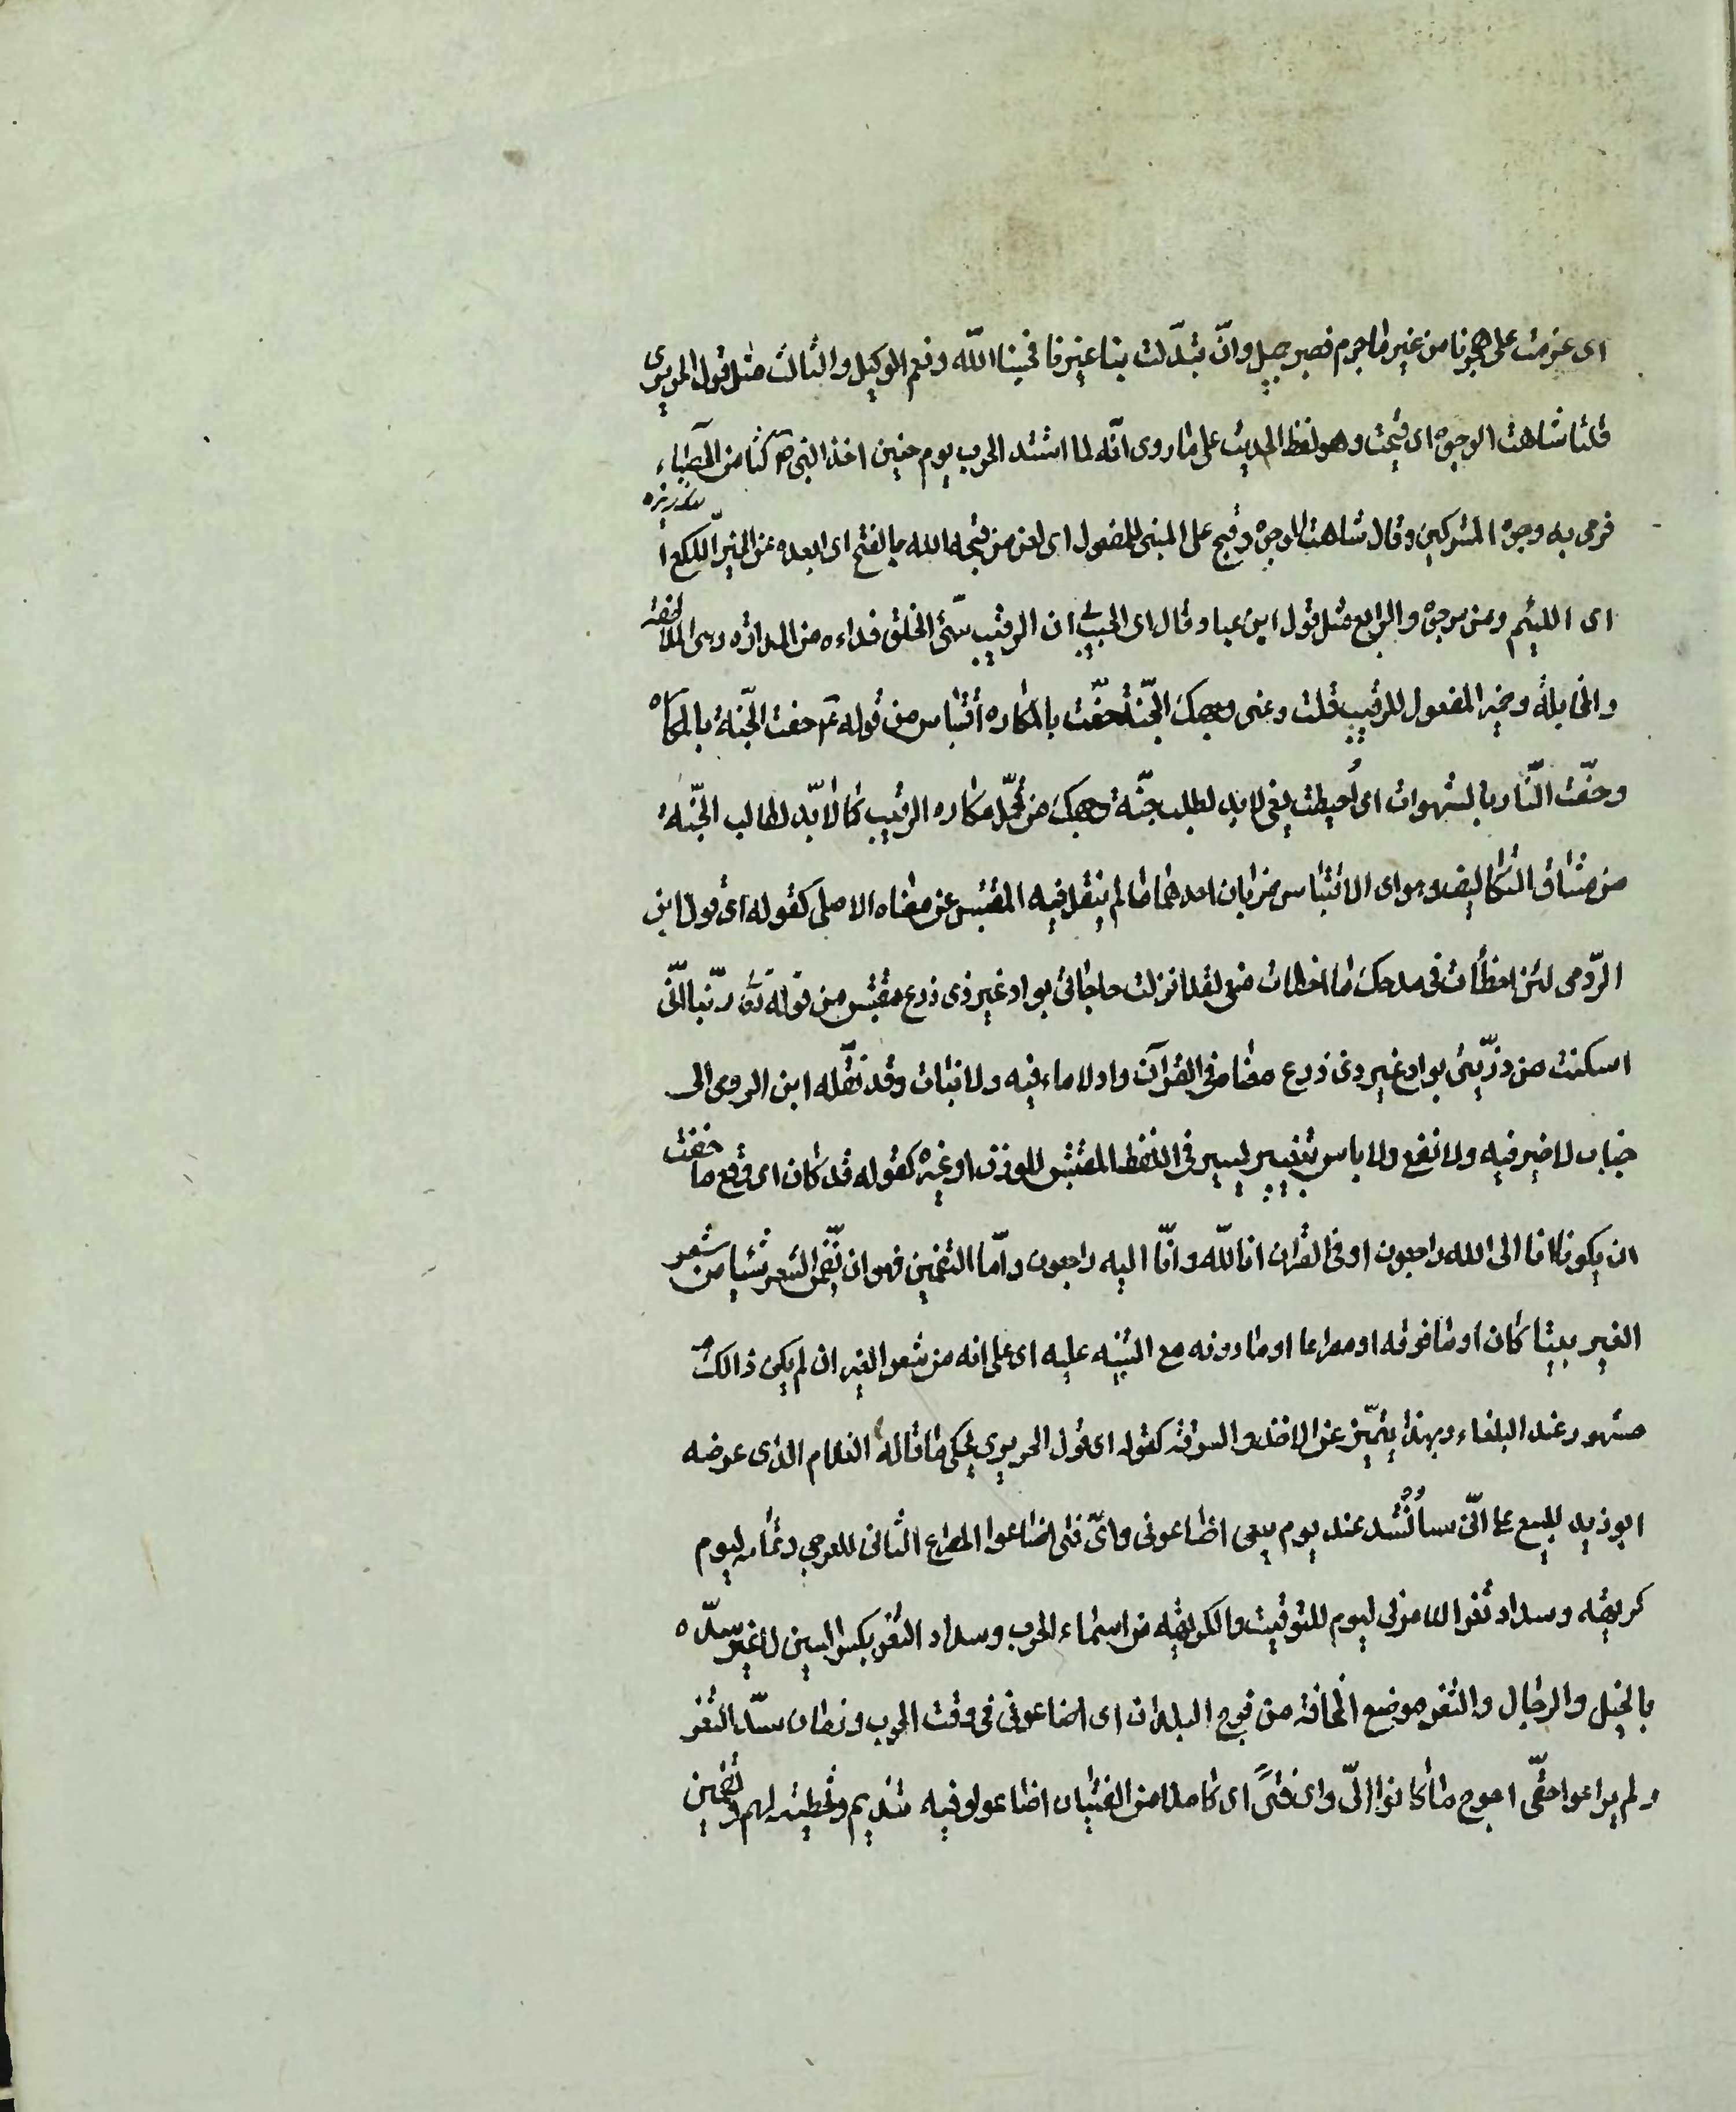 اى عزمت على هجرنا من غير ما جرم فصبر جميل وانّ تبدّلت بنا غيرنا فحسبنا اللّه ونعم الوكيل والثالث مثل قول الحريرى
قلنا شاهت الوجوه اى قبحت وهو لفظ الحديث على ما روى انّه لما اشتد الحرب يوم حنين اخذ النبى ص كفا من الحصباء
سنكريزه
فرمى به وجوه المشركين وقال شاهت الوجوه وقبح على المبنى للمفعول اى لعن من قبحه الله بالفتح اى ابعده عن الخير اللكع ا
اى اللئيم ومن يرجوه والرابع مثل قول ابن عباد قال اى الحبيب لى ان الرقيب سيّئ الخلق فداره من المداراة وهى الملاطفة
والمخاتلة وضمير المفعول للرقيب قلت دعنى وجهك الجنّة حفّت بالمكاره اقتباس من قوله عم حفت الجنّة بالمكاره
وحفّت النّار بالشهوات اى اُحيطت يعنى لابد لطلب جنّة وجهك من تحمّل مكاره الرقيب كما لابّد لطالب الجنّة
من مشاق التكاليف وهو اى الاقتباس ضربان احدهما ما لم ينقل فيه المقتبس عن معناه الاصلى كقوله اى قول ابن
الرّومى لئن اخطأت فى مدحك ما اخطات منعى لقد انزلت حاجاتى بواد غير ذى زرع مقتبس من قوله تع ربّنا انّى
اسكنت من ذرّيتى بواد غير ذى زرع معناه فى القرآن واد لا ماء فيه ولا نبات وقد نقله ابن الرومى الى
جناب لا خير فيه ولا نفع ولا باس بتغيير يسير فى اللفظ المقتبس للوزن او غيره كقوله قد كان اى وقع ما خفت
ان يكونا انا الى الله راجعون او فى القران انا للّه وانّا اليه راجعون وامّا التضمين فهو ان يضّمن الشعر شيئا من شعر
الغير بيتا كان او ما فوقه او مصراعا او ما دونه مع التنبيه عليه اى على انه من شعر الغير ان لم يكن ذالك
مشهور عند البلغاء وبهذا يتميّز عن الاخذ والسرقة كقوله اى قول الحريرى يحكى ما قاله الغلام الذى عرضه
ابو زيد للبيع على انّى ساُنُشد عند يوم بيعى اضاعونى واىّ فتى اضاعوا المصراع الثانى للعرجى وتمامه ليوم
كريهة وسداد ثغر اللام فى ليوم للتوقيت والكريهة من اسماء الحرب وسداد الثغر بكسر السين لا غير سدّه
بالخيل والرجال والثغر موضع المخافة من فروج البلدان اى اضاعونى فى وقت الحرب وزمان سدّ الثغر
ولم يراعوا حقّى احوج ما كانوا الىّ واى فتىً اى كاملا من الفتيان اضاعوا وفيه تنديم وتخطئة لهم وتضمين